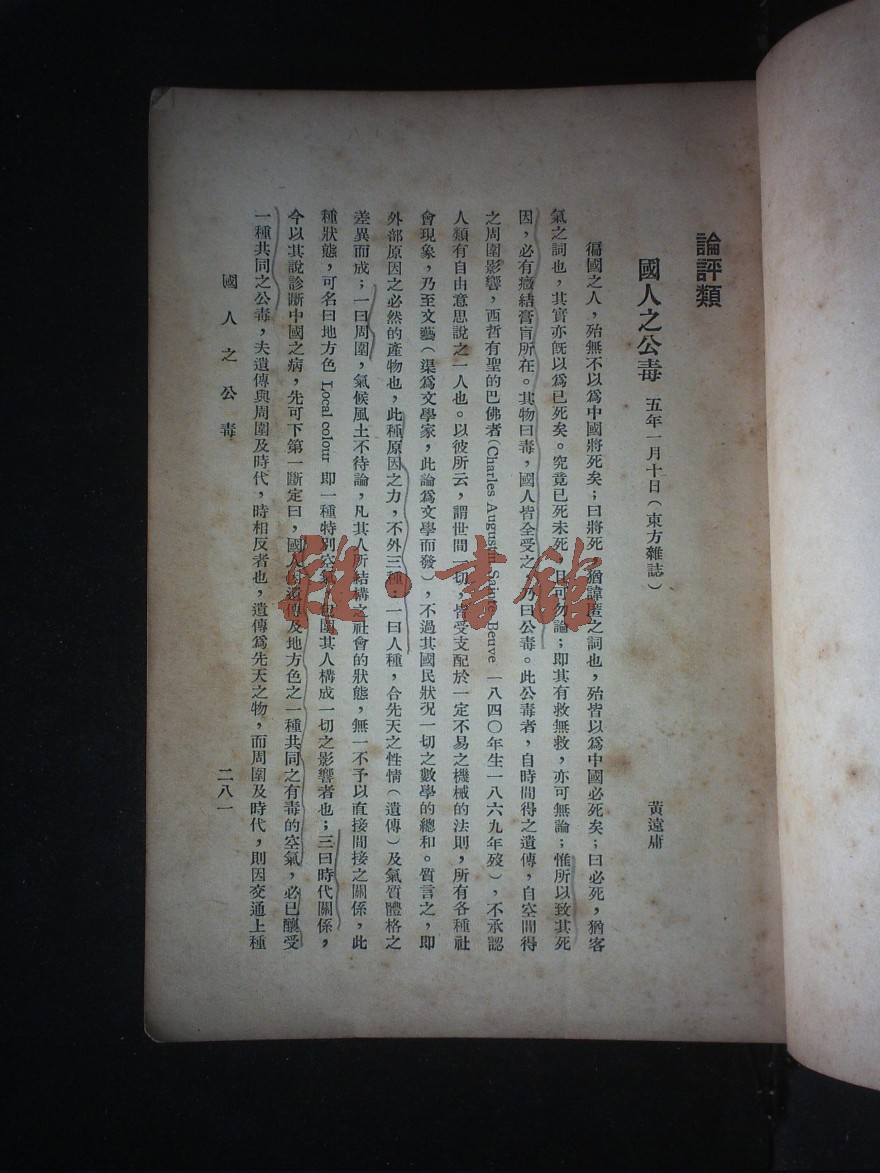 論評類
國人之公毒 五年一月十日(東方雜誌)
黃遠庸
徧國之人,殆無不以爲中國將死矣;曰將死,猶諱匿之詞也,殆皆以爲中國必死矣;曰必死,猶客
氣之詞也,其實亦旣以爲已死矣。究竟已死未死,且可勿論;即其有救無救,亦可無論;惟所以致其死
因,必有癥結膏肓所在。其物曰毒,國人皆全受之,可曰公毒。此公毒者,自時間得之遺傳,自空間得
之周圍影響,西哲有聖的巴佛者(Charles Augustin Sainte Beuve 一八四〇年生一八六九年歿),不承認
人類有自由意思說之一人也。以彼所云,謂世間一切,皆受支配於一定不易之機械的法則,所有各種社
會現象,乃至文藝(渠爲文學家,此論爲文學而發),不過其國民狀況一切之數學的總和。質言之,即
外部原因之必然的產物也,此種原因之力,不外三種:一曰人種,合先天之性情(遺傳)及氣質體格之
差異而成;一曰周圍,氣候風土不待論,凡其人所結構之社會的狀態,無一不予以直接間接之關係,此
種狀態,可名曰地方色 Local colour 即一種特別空氣,包圍其人構成一切之影響者也;三曰時代關係,
今以其說診斷中國之病,先可下第一斷定曰,國人公遺傳及地方色之一種共同之有毒的空氣,必已釀受
一種共同之公毒,夫遺傳與周圍及時代,時相反者也,遺傳爲先天之物,而周圍及時代,則因交通上種
國人之公毒
二八一
雜·書館